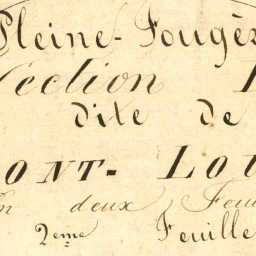 Pleine-Fougèr
Section
dite de
ONT-LOU
En deux Feui
2eme Feuille